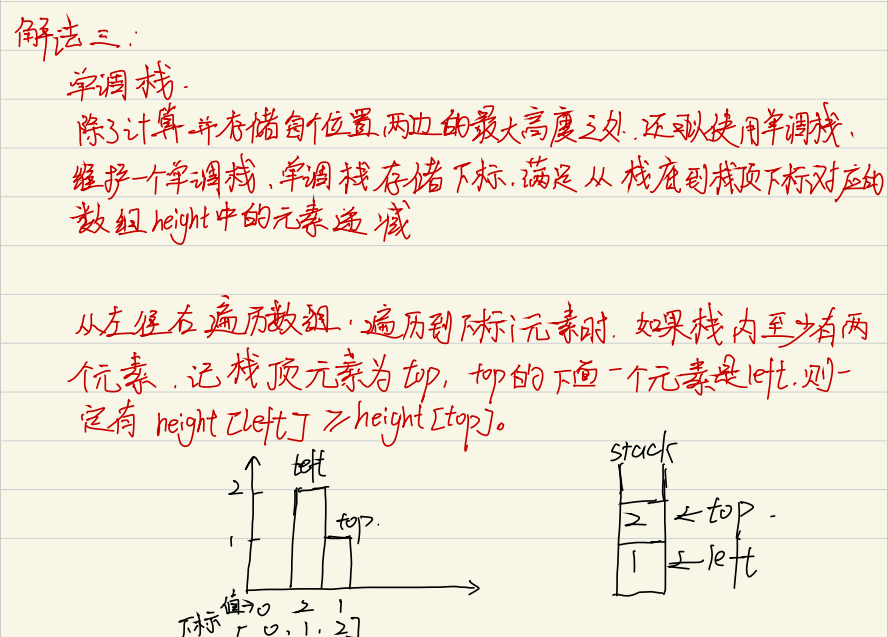 解法三:
单调栈.
除了计算并存储每个位置两边的最大高度之外,还可以使用单调栈,
维护一个单调栈、单调栈存储下标,满足从栈底到栈顶下标对应的
数组height中的元素递减
从左往右遍历数组,遍历到下标i元素时.如果栈内至少有两
个元素,记栈顶元素为top,top的下面一个元素是left.则一
定有 height[left]≥height[top]。
stack
left
2
top.
1
2 ←top.
1 ←left
值→0 2 1
下标 [0,1,2]